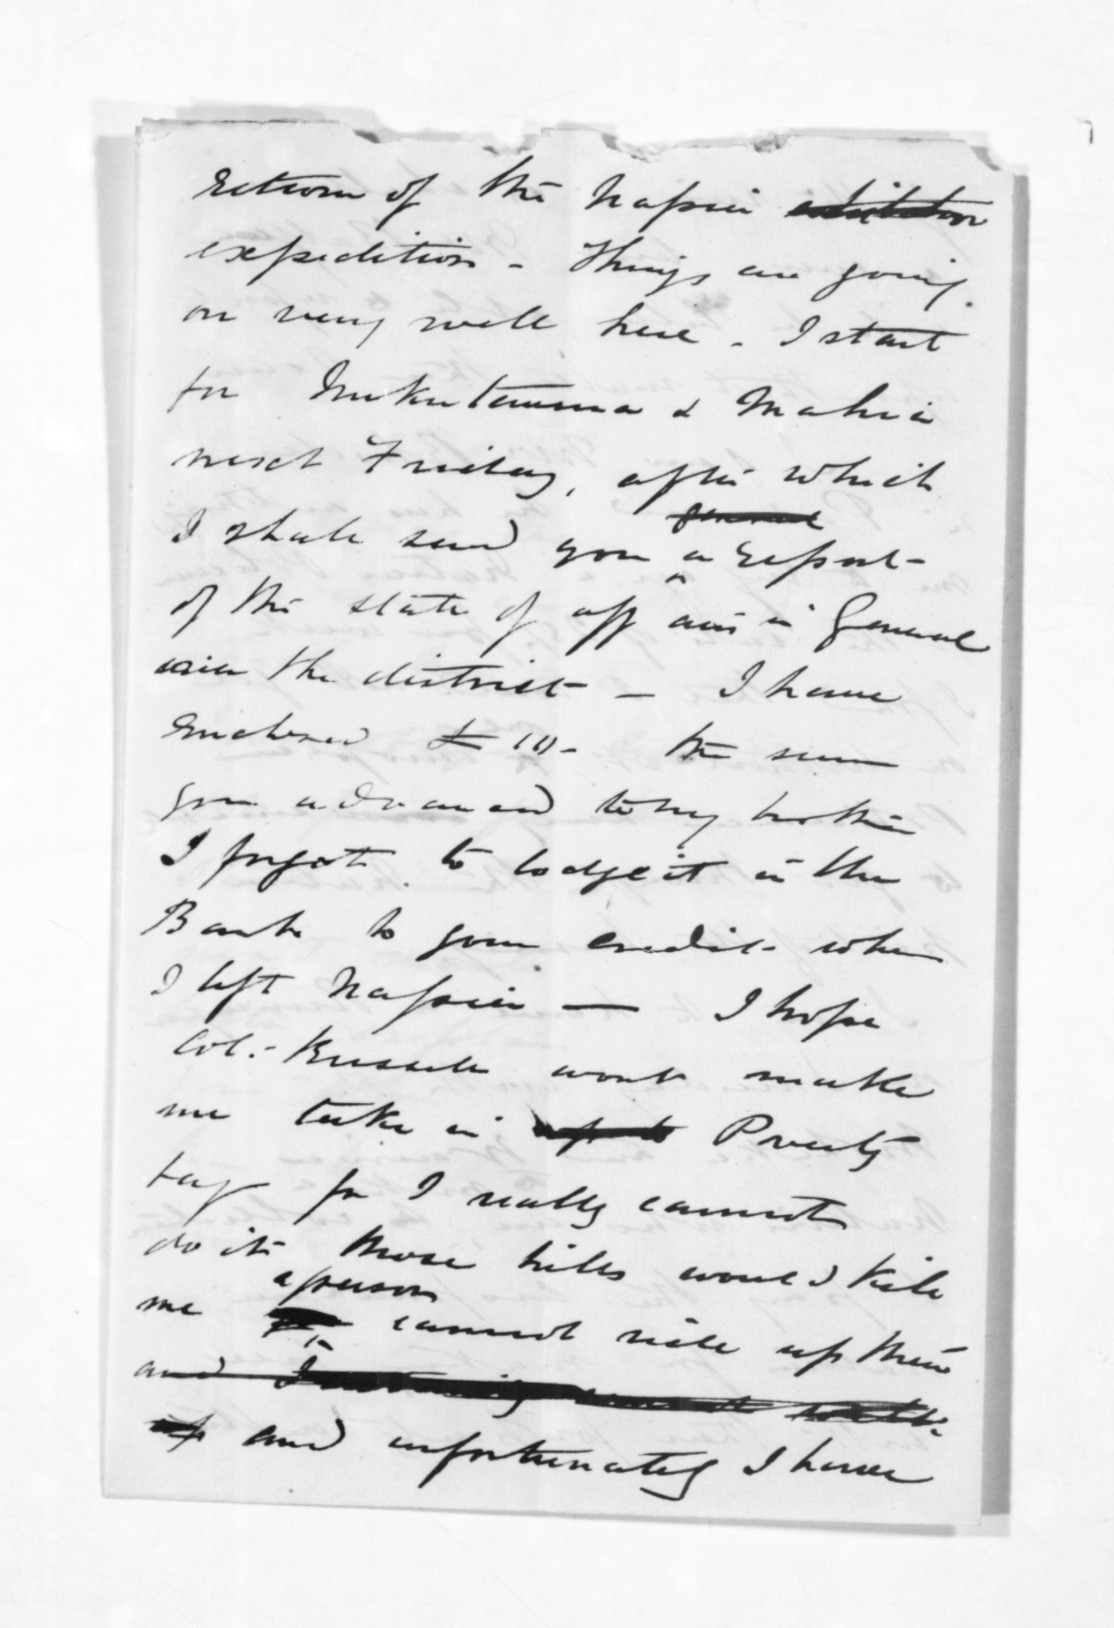 return of the Napier
expedition - Things are going
on very well here - I start
for Nukutaurua & Mahia
next Friday, after which
I shall send you a report
of the state of affairs in General
in the district - I have
enclosed £10- the sum
you advanced to my brother
I forgot to lodge it in the
Bank to your credit when
I left Napier - I hope
Col. Russell wont make
me take in Poverty
bay for I really cannot
do it those hills would kill
a person
me cannot ride up them
and I certainly
up and unfortunately I have